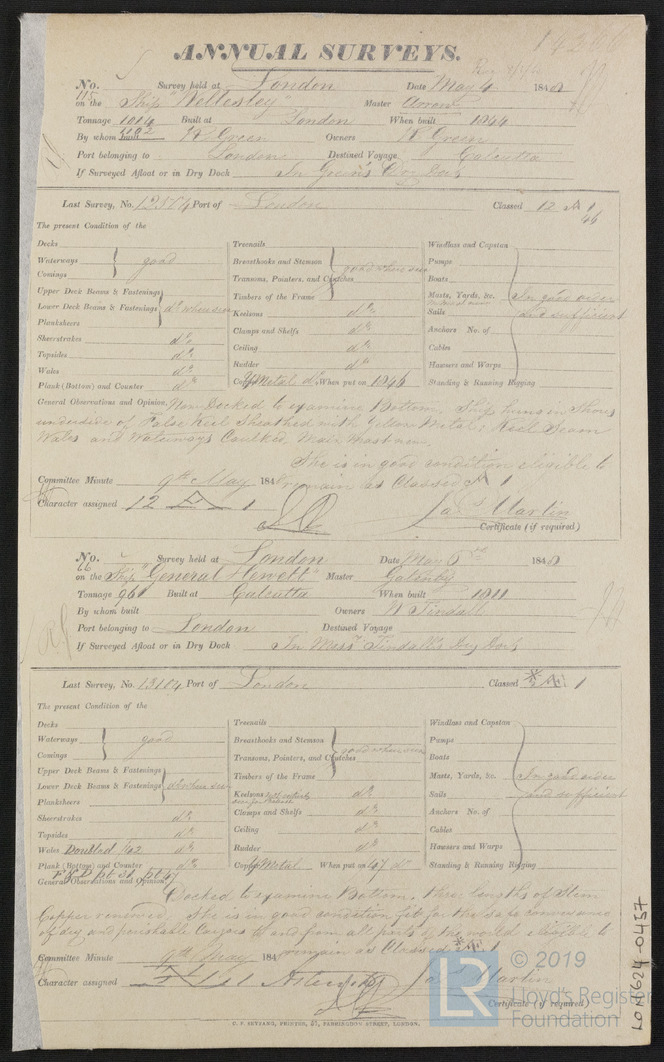 ANNUAL SURVEYS.
No. 115 Survey held at London Date May 4 1848
on the Ship "Wellesley" Master Arrow
Tonnage 1014 Built at London When built 1844
By whom built R Green Owners R Green
Port belonging to London Destined Voyage Calcutta
If Surveyed Afloat or in Dry Dock In Green's Dry Dock
Last Survey, No. 12574 Port of London Classed 12 A 1
46
The present Condition of the
Decks
Waterways good
Comings
Upper Deck Beams & Fastenings
Lower Deck Beams & Fastenings do where seen
Planksheers
Sheerstrakes do
Topsides do
Wales do
Plank (Bottom) and Counter do
Treenails
Breasthooks and Stemson good where seen
Transoms, Pointers, and Crutches
Timbers of the Frame
Keelsons do
Clamps and Shelfs do
Ceiling do
Rudder do
Copper Y Metal do When put on 1846
Windlass and Capstan
Pumps
Boats
Masts, Yards, &c. In good order
Sails and sufficient
Anchors No. of
Cables
Hawsers and Warps
Standing & Running Rigging
General Observations and Opinion, Now Docked to examine Bottom. Ship hung in Shores
underside of False Keel Sheathed with Yellow Metal; Keel Seam
Wales and Waterways Caulked, Main Mast new.
She is in good condition eligible to
Committee Minute 9th May 184 remain as Classed A 1
Character assigned 12 A 1 Jas Martin
Certificate (if required)
No. 66 Survey held at London Date May 5 1848
on the Ship "General Hewett" Master Gatenby
Tonnage 961 Built at Calcutta When built 1811
By whom built Owners W Tindall
Port belonging to London Destined Voyage
If Surveyed Afloat or in Dry Dock In Messrs Tindall's Dry Dock
Last Survey, No. 13104 Port of London Classed 1
The present Condition of the
Decks
Waterways good
Comings
Upper Deck Beams & Fastenings
Lower Deck Beams & Fastenings do where seen
Planksheers
Sheerstrakes do
Topsides do
Wales Doubled do
Plank (Bottom) and Counter do
Treenails
Breasthooks and Stemson good where seen
Transoms, Pointers, and Crutches
Timbers of the Frame
Keelsons do
Clamps and Shelfs do
Ceiling do
Rudder do
Copper Y Metal When put on 47 do
Windlass and Capstan
Pumps
Boats
Masts, Yards, &c. In good order
Sails and sufficient
Anchors No. of
Cables
Hawsers and Warps
Standing & Running Rigging
General Observations and Opinion,
Docked to examine Bottom, three lengths of Stem
Copper renewed. She is in good condition fit for the safe conveyance
of dry and perishable Cargoes to and from all parts of the world eligible to
Committee Minute 9th May 184 remain as Classed 1
Character assigned Jas Martin
Certificate (if required)
C. F. SEYFANG, PRINTER, 57, FARRINGDON STREET, LONDON.
LON624-0457
LR © 2019
Lloyd's Register
Foundation